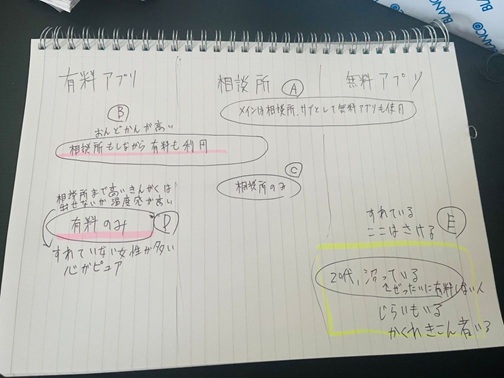 BLANCO
BLANCO
有料アプリ
相談所
無料アプリ
A
メインは相談所、サブとして無料アプリも使用
B
おんどかんが高い
相談所もしながら有料も利用
C
相談所のみ
相談所まで高いきんがくは
出せないが温度感が高い
有料のみ
D
すれていない女性が多い
心がピュア
すれている
ここはさける
E
20代、沼っている
ぜったいに有料しない人
じらいもいる
かくれきこん者いる